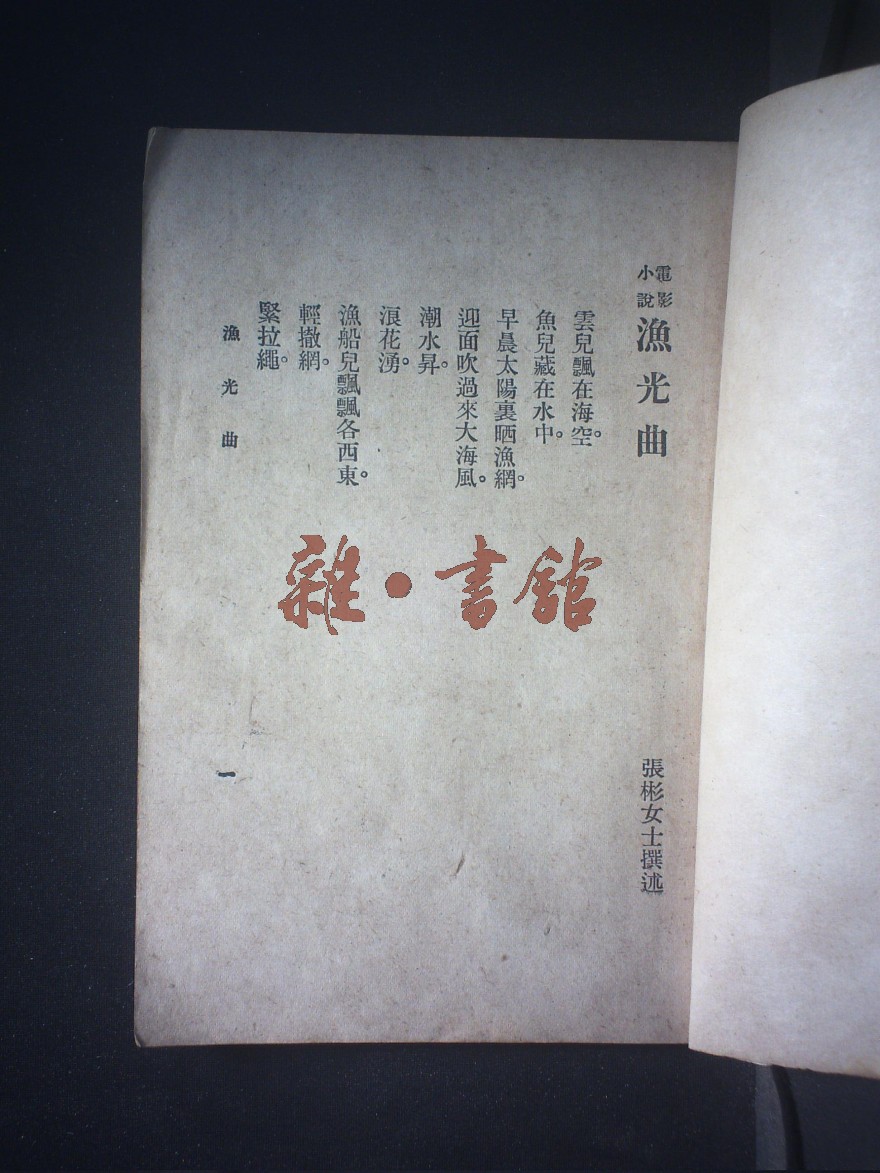 電影小說 漁光曲
張彬女士撰述
雲兒飄在海空。
魚兒藏在水中。
早晨太陽裏晒漁網。
迎面吹過來大海風。
潮水昇。
浪花湧。
漁船兒飄飄各西東。
輕撒網。
緊拉繩。
漁光曲
一
雜·書館